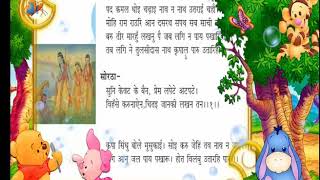 पद कमल धोइ चढ़ाइ नाव न नाथ उतराई चहौं
मोहि राम राउरि आन दसरथ सपथ सब साची
बरु तीर मारहुँ लखनु पै जब लगि न पाय पखा
तब लगि न तुलसीदास नाथ कृपालु पारु उतारि
सोरठा-
सुनि केवट के बैन, प्रेम लपेटे अटपटे।
बिहँसे करुनाऐन, चितइ जानकी लखन तन।।१।।
कृपा सिंधु बोले मुसुकाई। सोइ करु जेहिं तव नाव न
गि आनु जल पाय पखारू। होत बिलंबु उतारहि पा